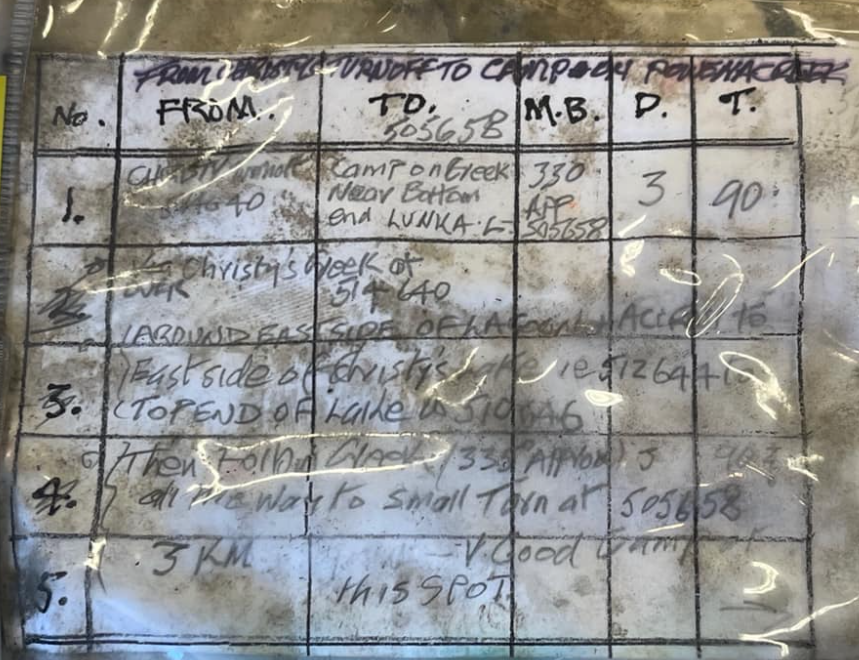 TURNOFF TO CAMP ON
No. FROM. TO. M.B. D. T.
505658
1. Camp on Creek 330 3 90
640 Near Bottom APP
end LUNKA.L. 505658
Christy's Creek at
OVER 514640
(AROUND EAST SIDE OF LAGOON 15
3. East side of Christy's Lake ie 512644
(TOP END OF Lake 510646
4. Then Follow Creek (335° Approx) 3
all the way to small Turn at 505658
5. 3 KM V Good Camp at
this SPOT.